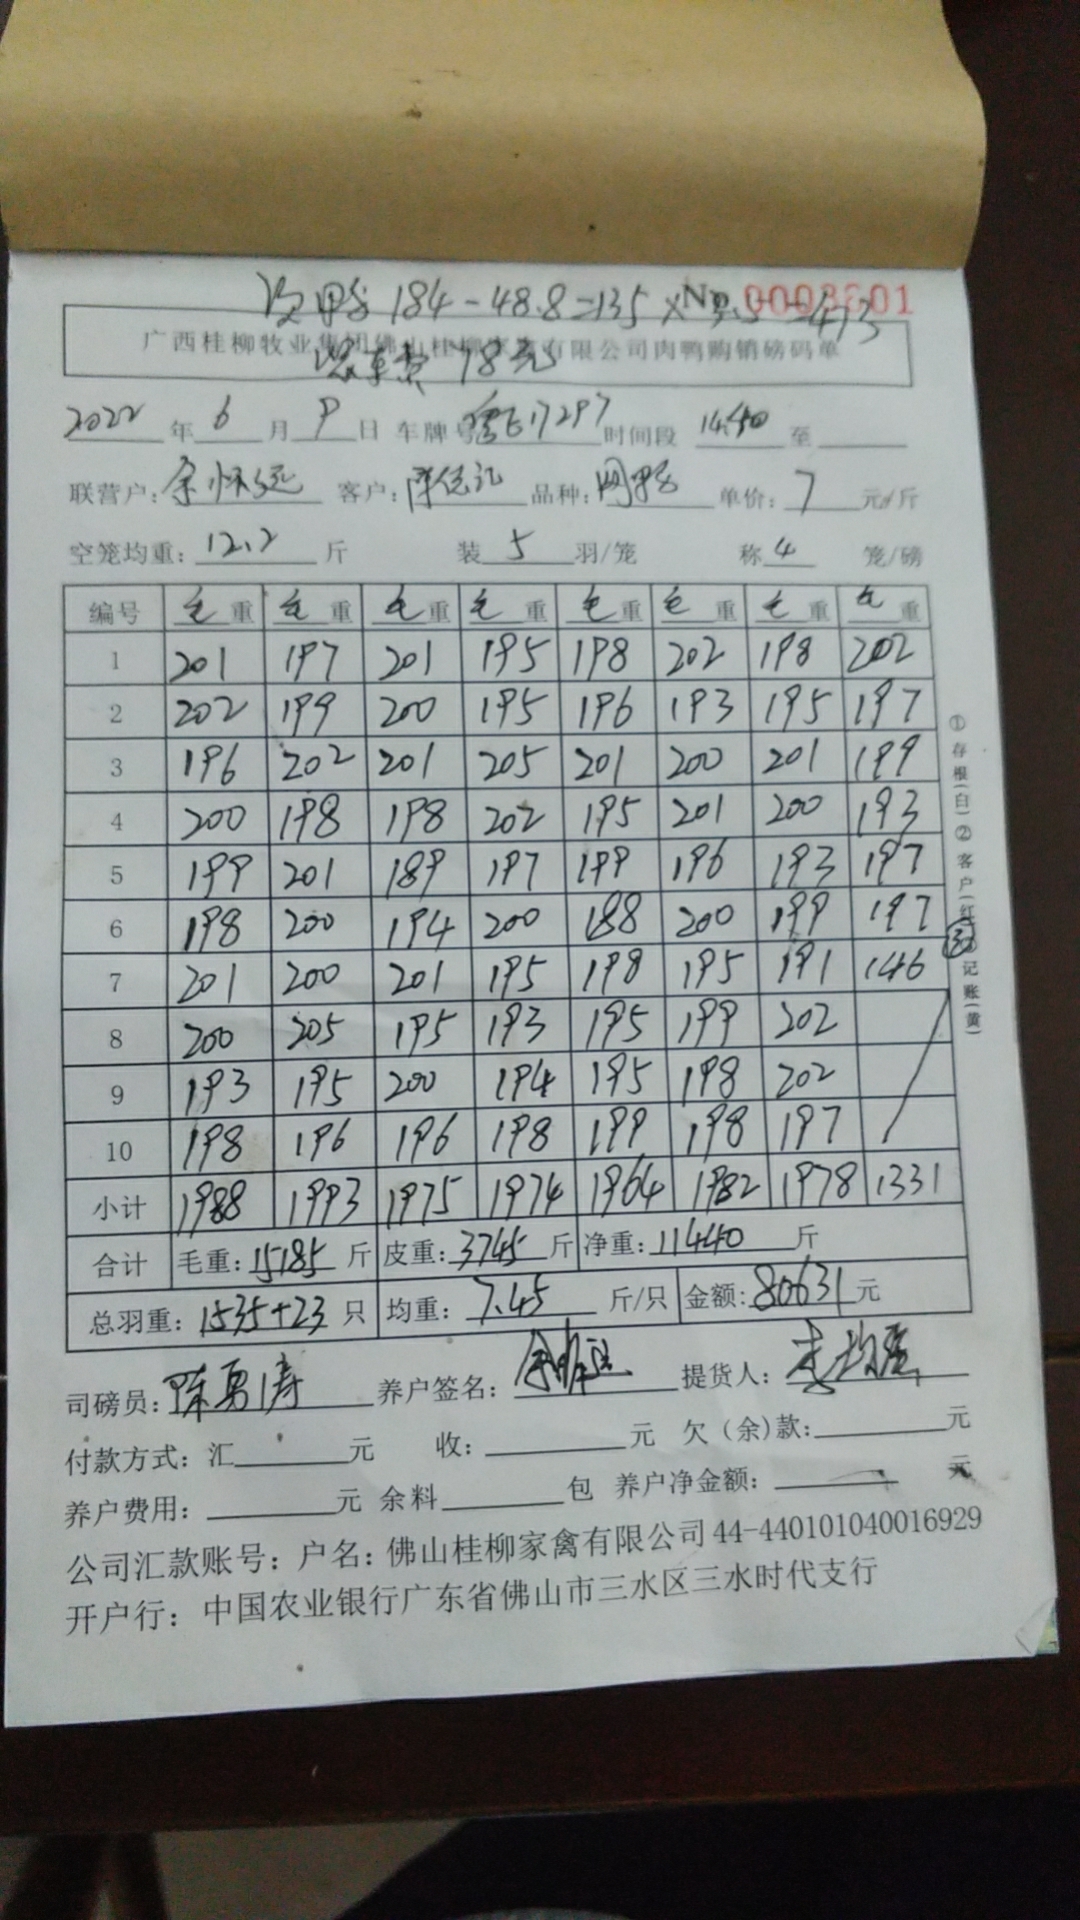 184-48.8=135 × 3.5 =413
No 0003601
广西桂柳牧业集团佛山桂柳家禽有限公司肉鸭购销磅码单
装车费 78元
2022年6月9日 车牌号 17297 时间段 14:40 至
联营户: 余怀远 客户: 陈伟记 品种: 网鸭 单价: 7 元/斤
空笼均重: 12.2 斤 装 5 羽/笼 称 4 笼/磅
编号 毛重 毛重 毛重 毛重 毛重 毛重 毛重 毛重
1 201 197 201 195 198 202 198 202
2 202 199 200 195 196 193 195 197
3 196 202 201 205 201 200 201 199
4 200 198 198 202 195 201 200 193
5 199 201 189 197 199 196 193 197
6 198 200 194 200 188 200 199 197
7 201 200 201 195 198 195 191 146
8 200 205 195 193 195 199 202
9 193 195 200 194 195 198 202
10 198 196 196 198 199 198 197
小计 1988 1993 1975 1974 1964 1982 1978 1331
合计 毛重: 15185 斤 皮重: 3745 斤 净重: 11440 斤
总羽重: 1535+23 只 均重: 7.45 斤/只 金额: 80631 元
司磅员: 陈勇涛 养户签名: 提货人:
付款方式: 汇 元 收: 元 欠(余)款: 元
养户费用: 元 余料 包 养户净金额: 元
公司汇款账号: 户名: 佛山桂柳家禽有限公司 44-440101040016929
开户行: 中国农业银行广东省佛山市三水区三水时代支行
①存根(白)②客户(红)③记账(黄)